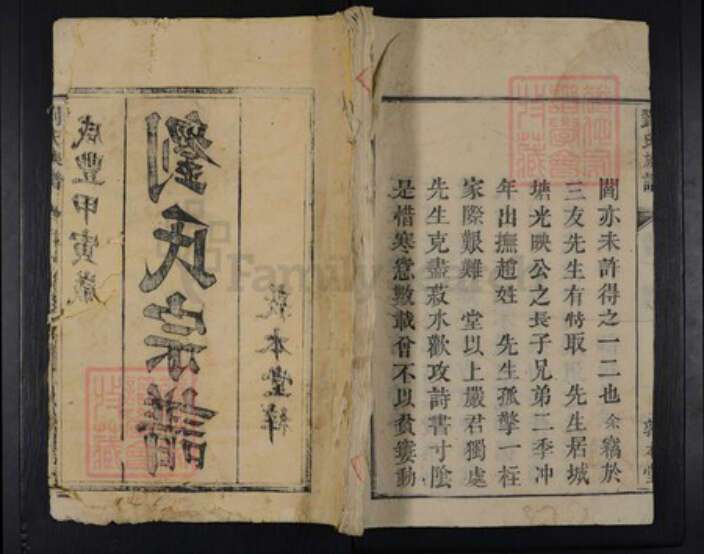 閭亦未許得之一二也余竊於
三友先生有特取 先生居城
塘光映公之長子兄弟二季冲
年出撫趙姓 先生孤擎一柱
家際艱難 堂以上嚴君獨處
先生克盡菽水歡攻詩書寸陰
是惜寒窓數載曾不以貧窶動
敦本堂
咸豐甲寅歲
劉氏宗譜
敦本堂梓
FamilySearch